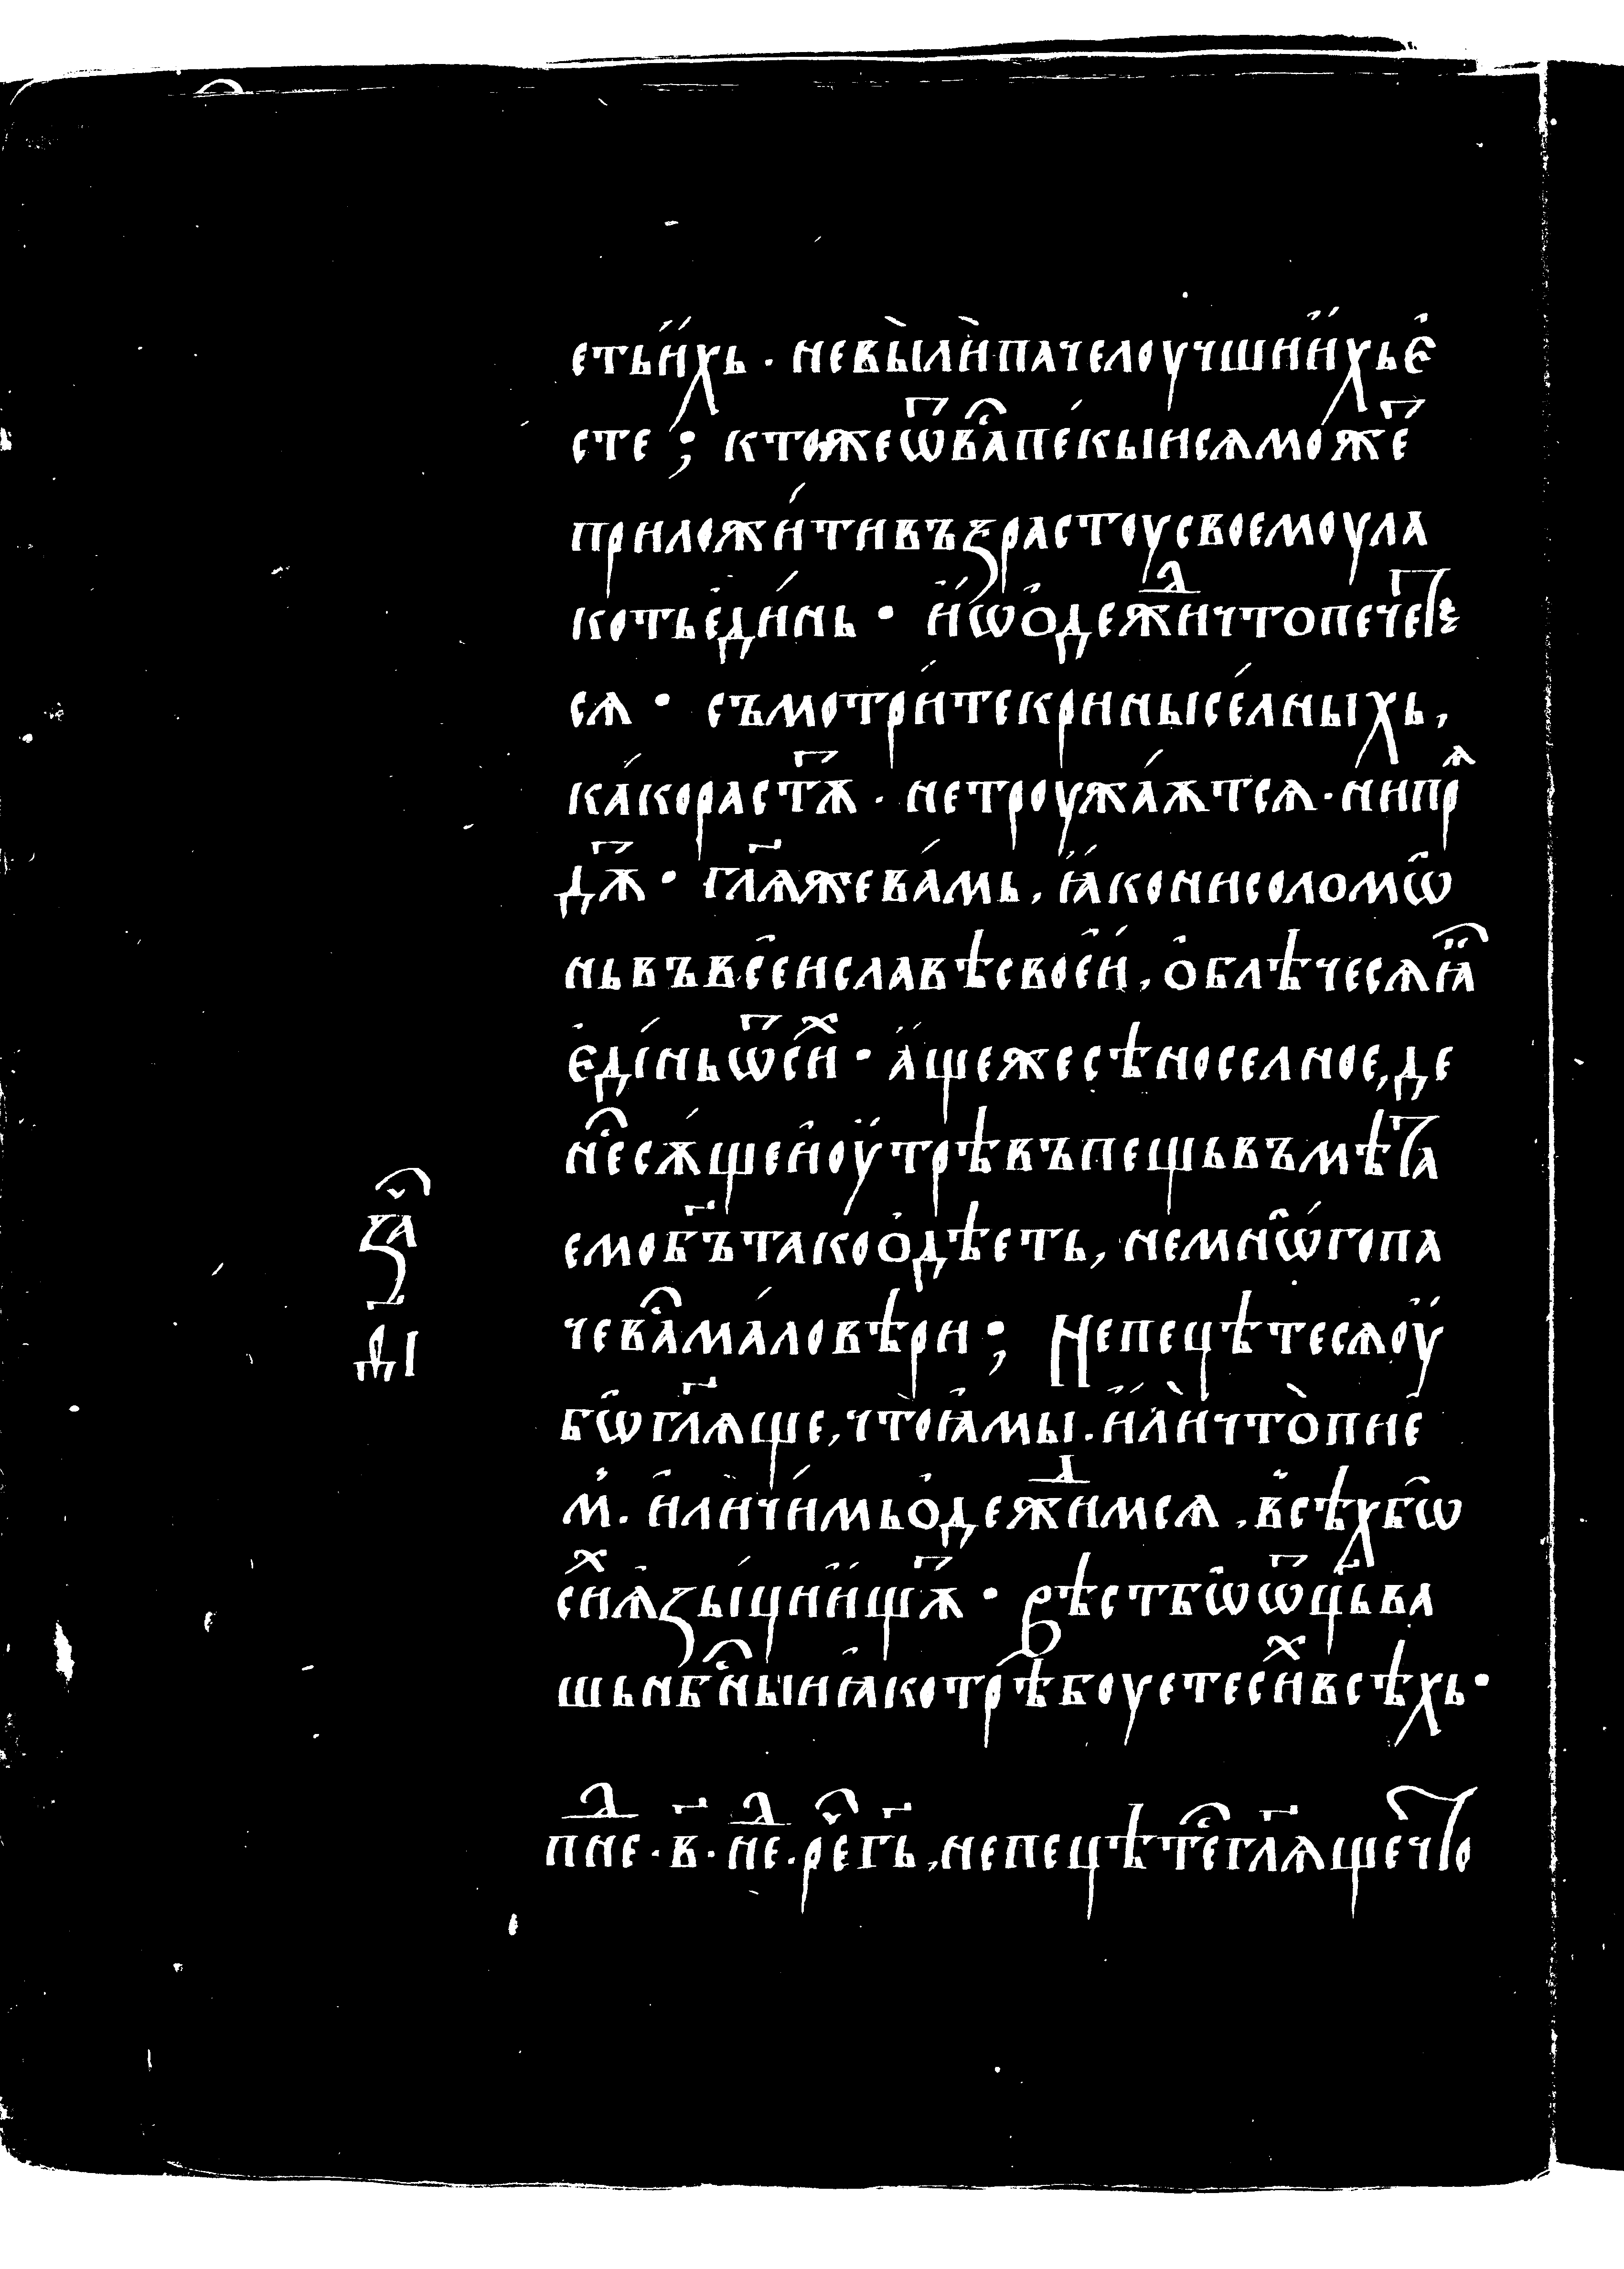 етьи́хь · не вы̀ л̀и пачелоучшїи́хьє҆
сте ; ктожеѿва́⁀пе́кыисѧмо́же҆ⷮ
приложи́тивъꙁрастоусвоемоула
котьеди́нь · и҆ѡ҆о҆дежⷣичтопечеⷮ
сѧ · съмотри́текринысе́лныхь,
ка́корастѫⷮ · нетроужа́ѫтсѧ · нипрѧ
дѫⷮ · гл҃ѧжева́мь , ꙗ҆конисоломѡ
ньвъвсе҆ислав҄ѣсвое҆и́ , о҆блѣчесѧꙗ҆ⷦ҇
є҆ді́ньѿсиⷯ · а҆щежесѣноселное,де
не҇сѫ́щеи҆оу҆трѣвъпещьвъмѣтаⷨ
емобг҃ътакоо҆дѣеть, немнѡ́гопа
чева́⁀ма́ловѣри ; Непецѣтесѧоу҆
бѡгл҃ѧще,чтò ꙗ҆мы . и҆л̀ичто̀пие҆
м҆ . и҆личи́мьо҆дежⷣимсѧ , в҆сѣхбѡ
сиⷯѧ҆ꙁы́циищѫⷮ · вѣстбѡѿц҃ьва
шьнбⷭ҇ныиꙗ҆котрѣбоуетесиⷯвсѣхь ·
пнеⷣ · в҃ · неⷣ · рⷱ҇егь҃ , непецѣтеⷭ҇гл҃ѧщечто
ꙁаⷱ҇